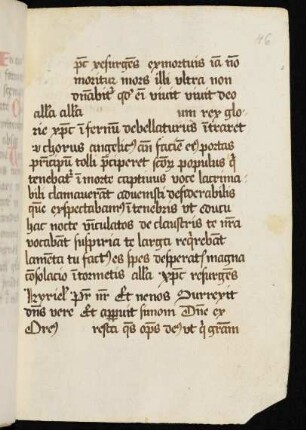 46
xpc̄ resurgēs exmortuis iā nō
moritur mors illi vltra non
dn̄abit᷑ qd᷑ eī viuit viuit deo
allā allā um rex glo-
rie xpc̄ īfernū debellaturus ītraret
⁊ chorus angelic᷒ an̄ faciē ei᷒ portas
prīcipū tolli p̄ciperet scōr populus q̄
tenebat᷑ ī morte captiuus voce lacrima-
bili clamauerat aduenisti desiderabilis
quē expectabam᷒ ī tenebris vt educe
hac nocte vīculatos de claustris te nr̄a
vocabāt suspiria te larga req̄rebāt
lamēta tu fact᷒ es spes desperat᷒ magna
cōsolacio ī tormētis allā xpc̄ resurgēs
kyriel᷒ Pr̄ nr̄ Et nenos Surrexit
dn̄s vere Et apparuit simoni Dn̄e ex
Ore᷒ resta q̄s op̄s de᷒ vt q̄ gr̄am